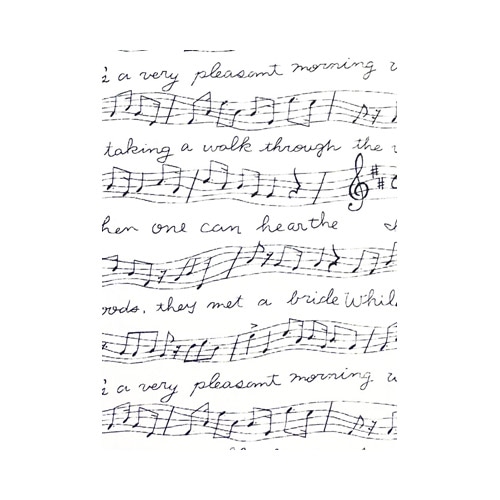 a very pleasant morning
taking a walk through the
hen one can hearthe
oods, they met a bride Whil
a very pleasant morning